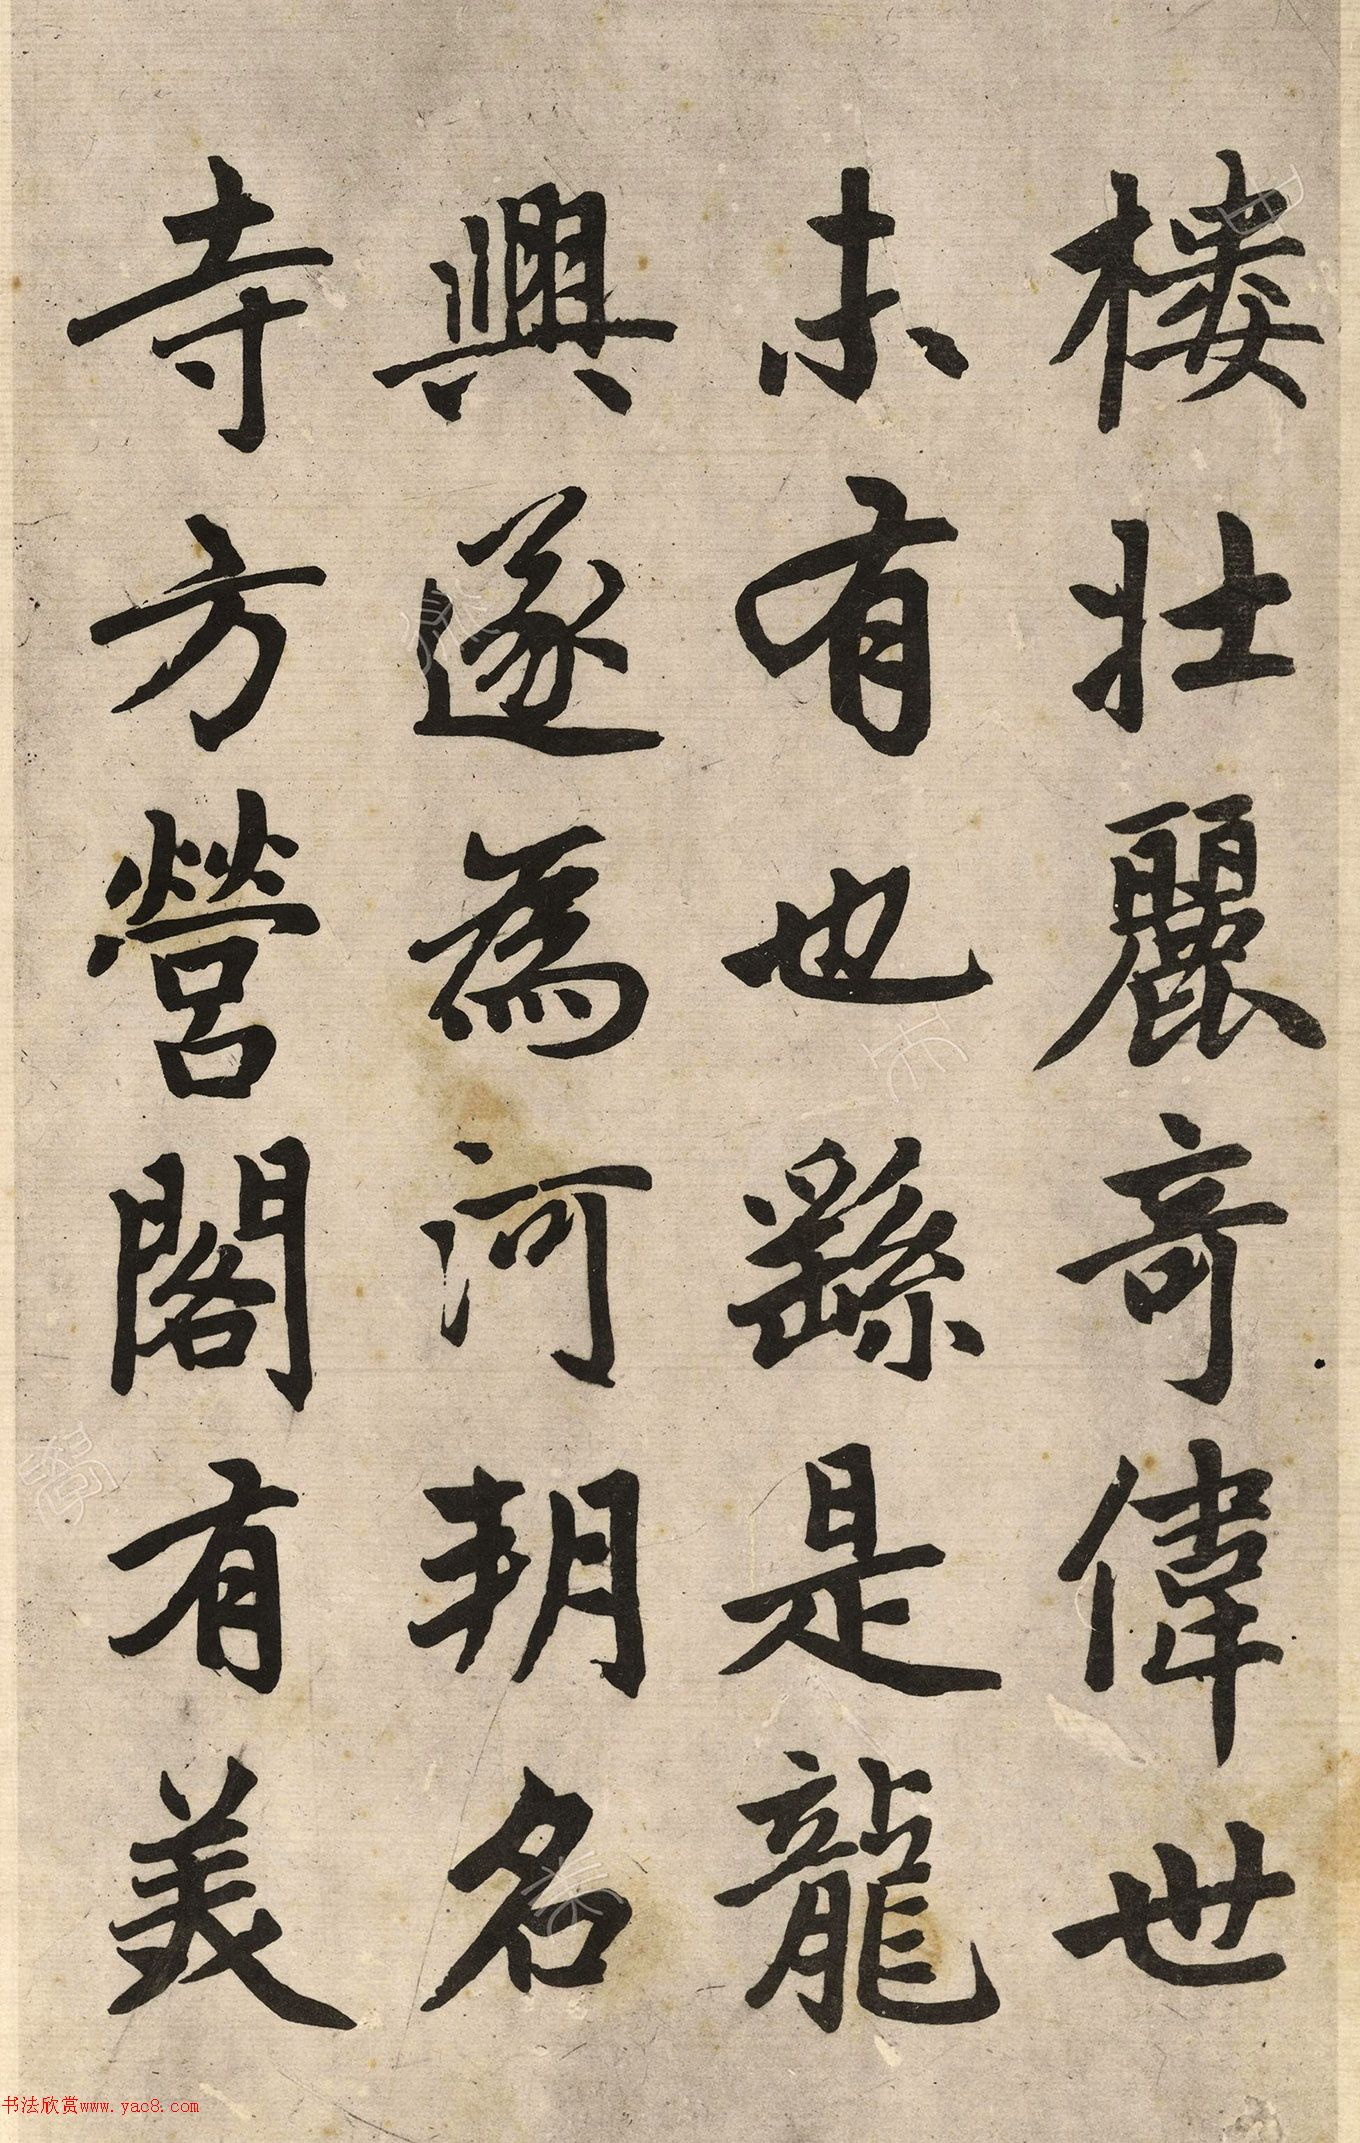 樓壯麗奇偉世
未有也繇是龍
興遂為河朔名
寺方營閣有美
书法欣赏www.yac8.com